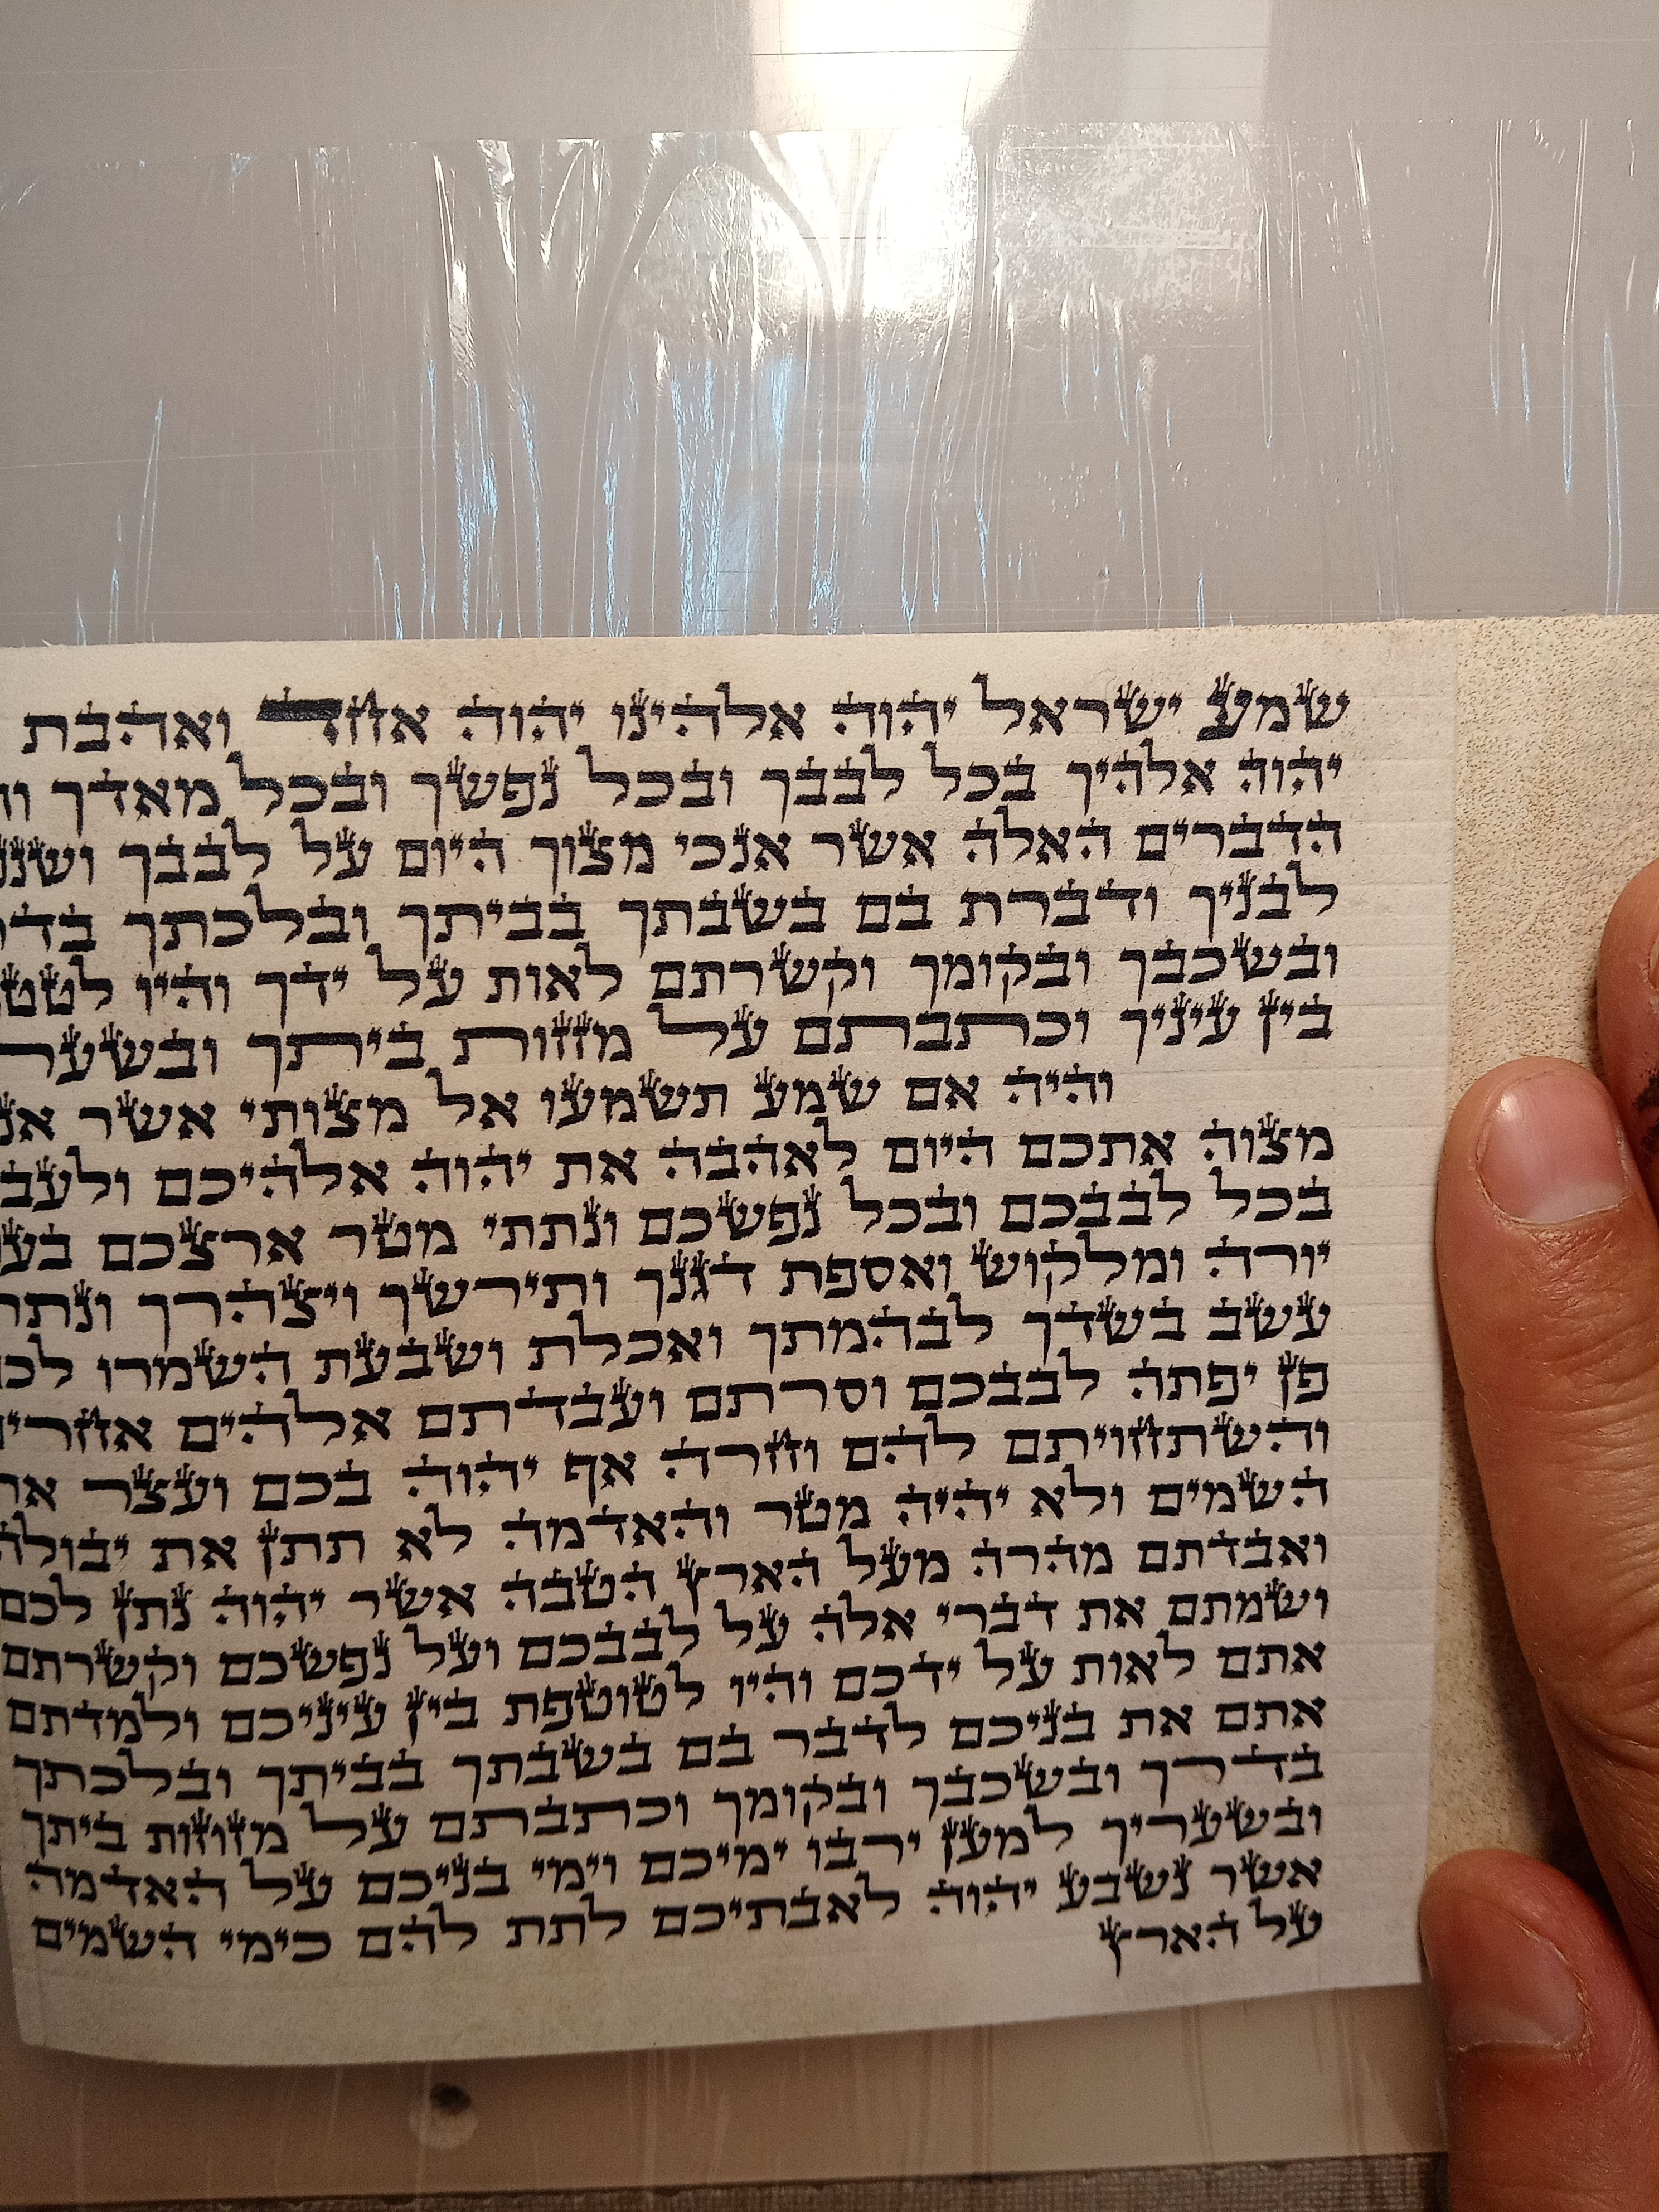 שמע ישראל יהוה אלהינו יהוה אחד ואהבת
יהוה אלהיך בכל לבבך ובכל נפשך ובכל מאדך
הדברים האלה אשר אנכי מצוך היום על לבבך
לבניך ודברת בם בשבתך בביתך ובלכתך
ובשכבך ובקומך וקשרתם לאות על ידך והיו
בין עיניך וכתבתם על מזוזות ביתך
והיה אם שמע תשמעו אל מצותי אשר
מצוה אתכם היום לאהבה את יהוה אלהיכם
בכל לבבכם ובכל נפשכם ונתתי מטר ארצכם
יורה ומלקוש ואספת דגנך ותירשך ויצהרך
עשב בשדך לבהמתך ואכלת ושבעת השמרו
פן יפתה לבבכם וסרתם ועבדתם אלהים
והשתחויתם להם וחרה אף יהוה בכם ועצר
השמים ולא יהיה מטר והאדמה לא תתן את
ואבדתם מהרה מעל הארץ הטבה אשר יהוה נתן לכם
ושמתם את דברי אלה על לבבכם ועל נפשכם וקשרתם
אתם לאות על ידכם והיו לטוטפת בין עיניכם ולמדתם
אתם את בניכם לדבר בם בשבתך בביתך ובלכתך
בדרך ובשכבך ובקומך וכתבתם על מזוזות ביתך
ובשעריך למען ירבו ימיכם וימי בניכם על האדמה
אשר נשבע יהוה לאבתיכם לתת להם כימי השמים
על הארץ